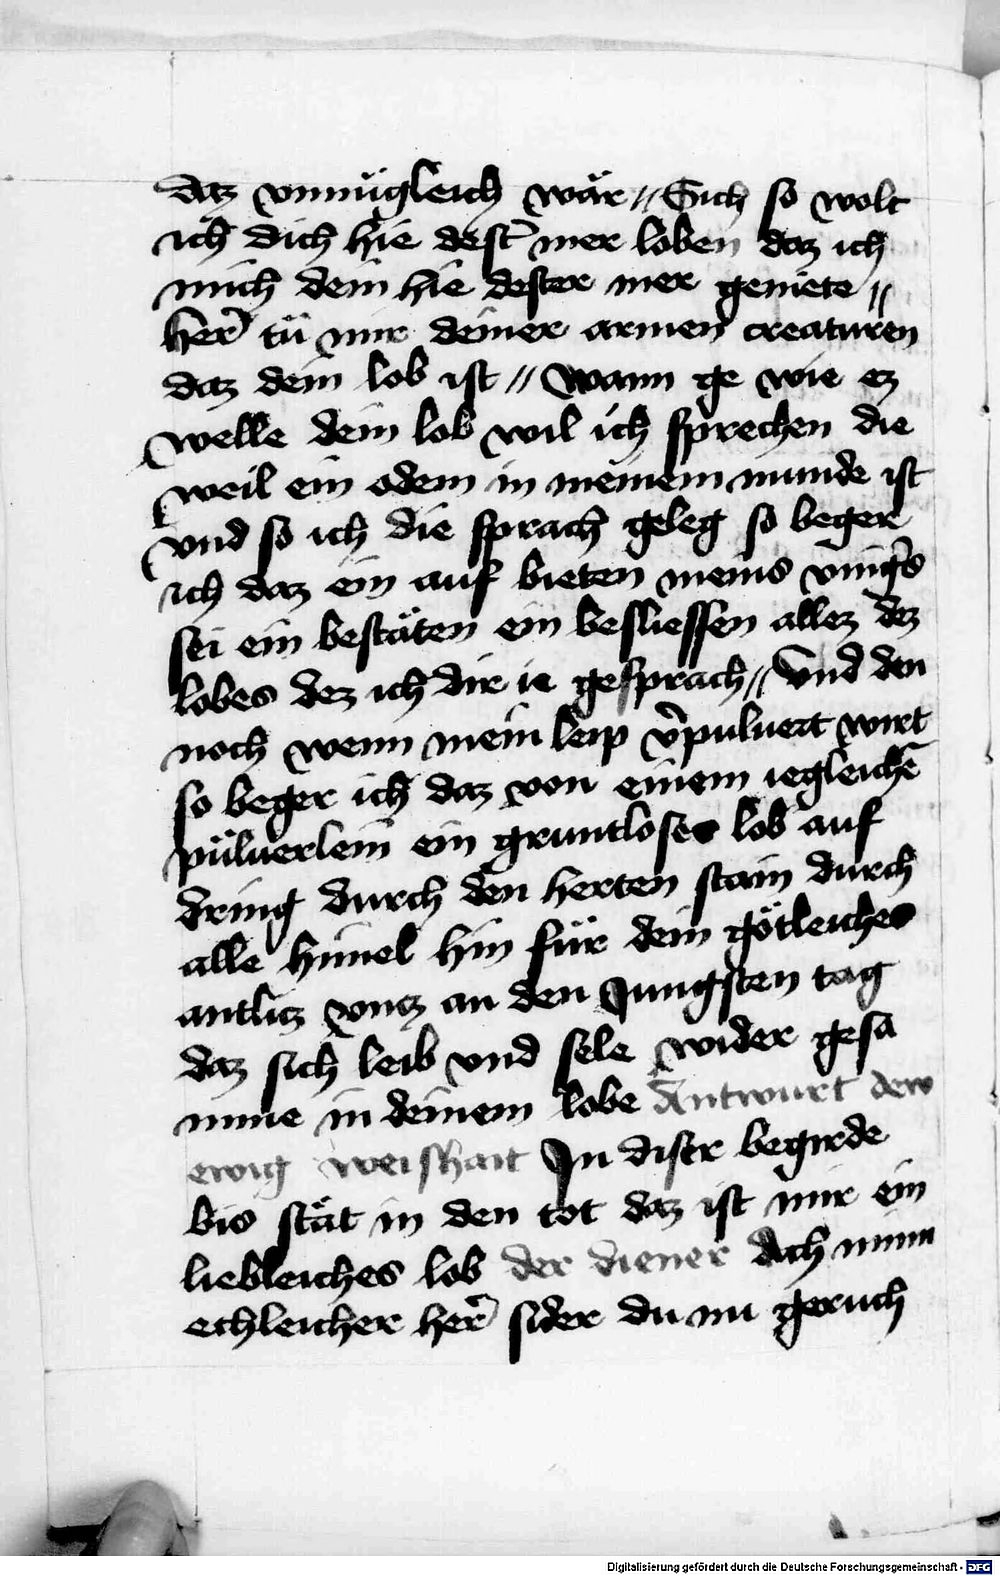 daz vnmügleich wär // Sich so wolt
ich dich hie dest̄ mer loben daz ich
mich dem hie dester mer geniete //
her̄ tü mir deiner armen creaturen
daz dein lob ist // Wann ge wie ez
welle dein lob wil ich sprechen die
weil ein odem in meinem munde ist
vnd so ich die sprach geleg so beger
ich daz ein auf bieten meins vinḡs
sei ein bestäten ein besliessen allez dez
lobes dez ich dir ie gesprach // Vnd den
noch wenn mein leip v̄puluert wirt
so beger ich daz von einem iegleichē
püluerlein ein gruntloses lob auf
dring durch den herten stain durch
alle himel hin für dein götleiches
antlitz vntz an den Jungsten tag
daz sich leib vnd sele wider gesa
mme in deinem lobe Antwurt dew
ewig weishait In diser begirde
bis stät in den tot daz ist mir ein
liebleiches lob der diener Ach minn
echleicher her̄ sider du nu geruch
Digitalisierung gefördert durch die Deutsche Forschungsgemeinschaft - DFG